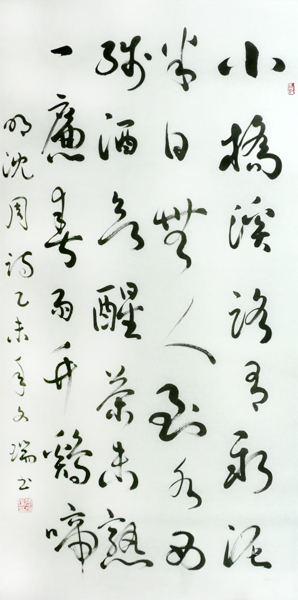 小橋溪路有新泥
半日無人到水西
殘酒欲醒茶未熟
一簾春雨竹鷄啼
明沈周詩乙未年文瑞书